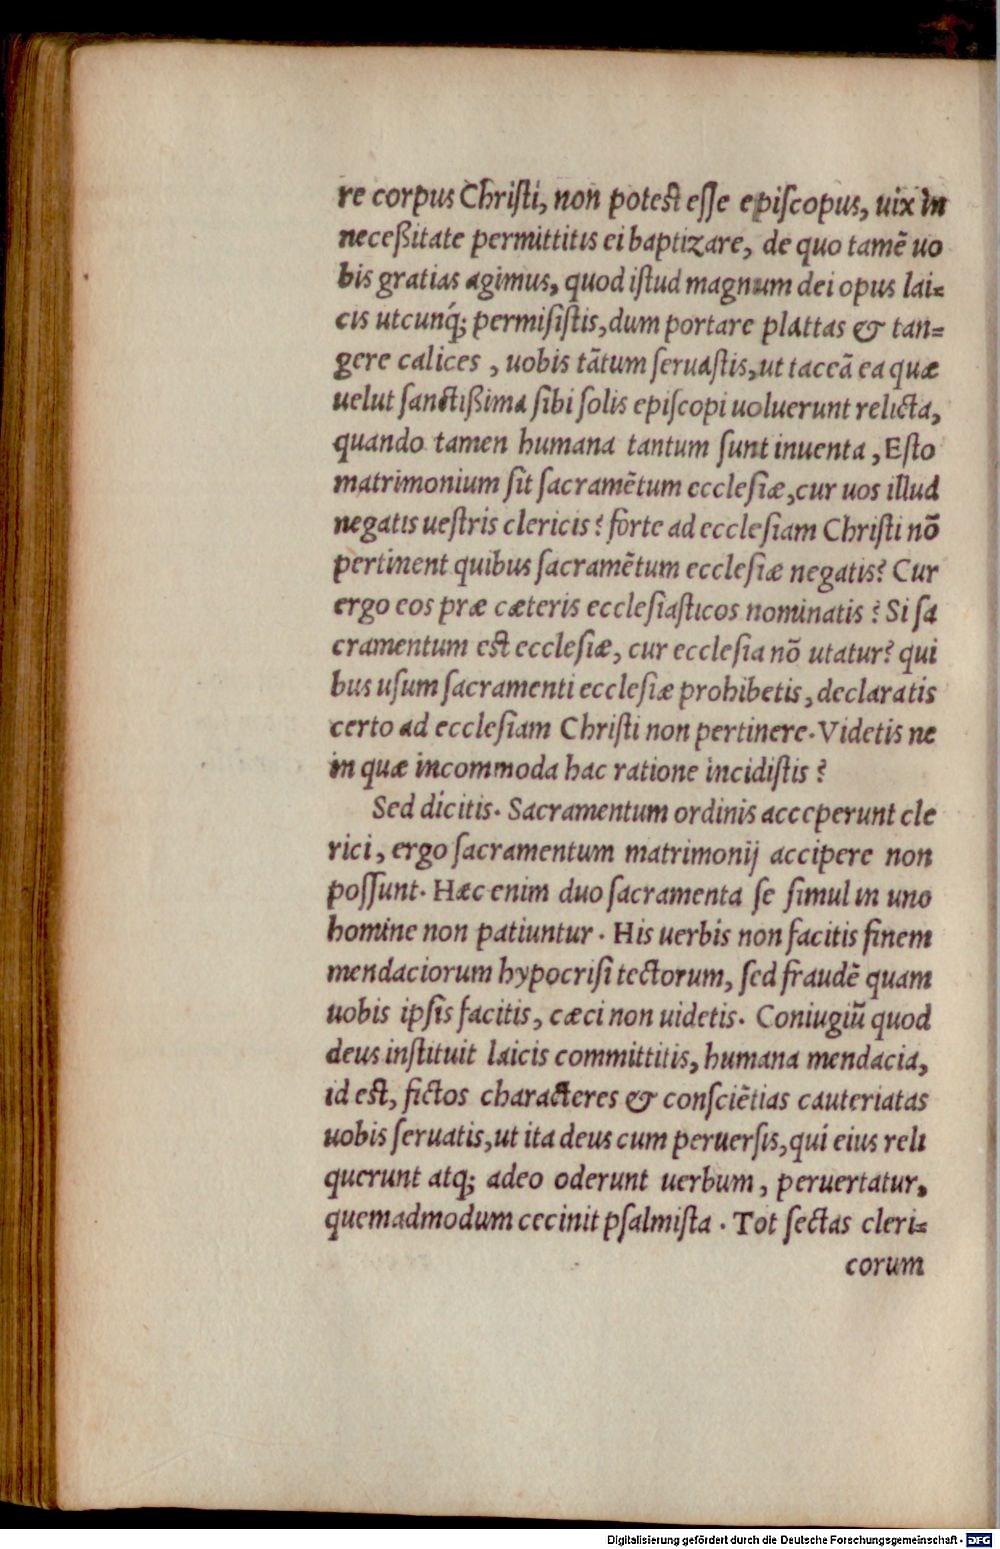 re corpus Chriſti, non poteſt eſſe epiſcopus, uix in
neceßitate permittitis ei baptizare, de quo tamẽ uo
bis gratias agimus, quod iſtud magnum dei opus lai-
cis utcunq́; permiſiſtis, dum portare plattas & tan-
gere calices, uobis tãtum ſeruaſtis, ut taceã ea quæ
uelut ſanctißima ſibi ſolis epiſcopi uoluerunt relicta,
quando tamen humana tantum ſunt inuenta, Eſto
matrimonium ſit ſacramẽtum eccleſiæ, cur uos illud
negatis ueſtris clericis? forte ad eccleſiam Chriſti nõ
pertinent quibus ſacramẽtum eccleſiæ negatis? Cur
ergo eos præ cæteris eccleſiaſticos nominatis? Si ſa
cramentum eſt eccleſiæ, cur eccleſia nõ utatur? qui
bus uſum ſacramenti eccleſiæ prohibetis, declaratis
certo ad eccleſiam Chriſti non pertinere. Videtis ne
in quæ incommoda hac ratione incidiſtis?
Sed dicitis. Sacramentum ordinis acceperunt cle
rici, ergo ſacramentum matrimonij accipere non
poſſunt. Hæc enim duo ſacramenta ſe ſimul in uno
homine non patiuntur. His uerbis non facitis finem
mendaciorum hypocriſi tectorum, ſed fraudẽ quam
uobis ipſis facitis, cæci non uidetis. Coniugiũ quod
deus inſtituit laicis committitis, humana mendacia,
id eſt, fictos characteres & conſciẽtias cauteriatas
uobis ſeruatis, ut ita deus cum peruerſis, qui eius reli
querunt atq; adeo oderunt uerbum, peruertatur,
quemadmodum cecinit pſalmiſta. Tot ſectas cleri-
corum
Digitalisierung gefördert durch die Deutsche Forschungsgemeinschaft - DFG